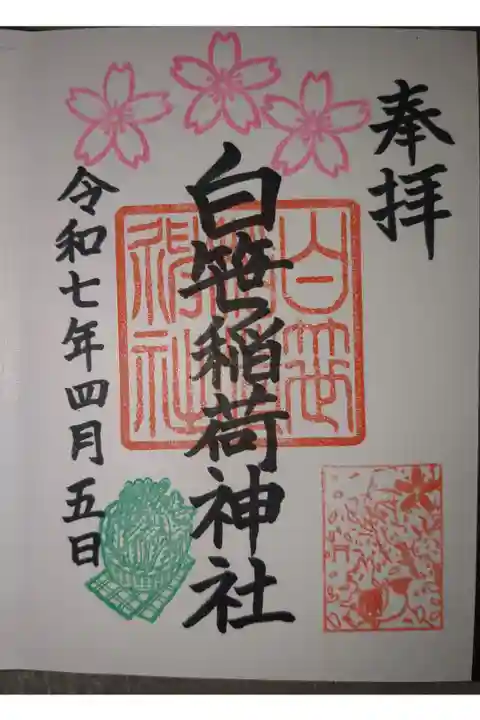 奉拝
白笹稲荷神社
白笹稲荷神社
令和七年四月五日